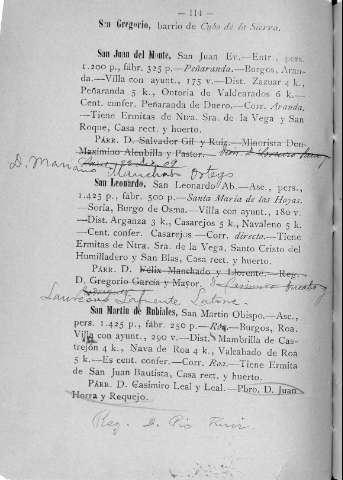 — 114 —
San Gregorio, barrio de Cubo de la Sierra.
San Juan del Monte, San Juan Ev.—Entr., pers.
1.200 p., fábr. 325 p.—Peñaranda.—Burgos, Aran-
da.—Villa con ayunt., 175 v.—Dist. Zazuar 4 k.,
Peñaranda 5 k., Ontoria de Valdearados 6 k.—
Cent. confer. Peñaranda de Duero.—Corr. Aranda.
—Tiene Ermitas de Ntra. Sra. de la Vega y San
Roque, Casa rect. y huerto.
Párr. D. Salvador Gil y Ruiz.—Minorista Don
Maximino Alcubilla y Pastor.
D. Mariano Manchado Ortego
San Leonardo, San Leonardo Ab.—Asc., pers.,
1.425 p., fábr. 500 p.—Santa María de las Hoyas.
—Soria, Burgo de Osma.—Villa con ayunt., 180 v.
—Dist. Arganza 3 k., Casarejos 5 k., Navaleno 5 k.
—Cent. confer. Casarejos—Corr. directo.—Tiene
Ermitas de Ntra. Sra. de la Vega, Santo Cristo del
Humilladero y San Blas, Casa rect. y huerto.
Párr. D. Félix Manchado y Llorente.—Reg.
D. Gregorio García y Mayor.
Laureano Lafuente
San Martín de Rubiales, San Martín Obispo.—Asc.,
pers. 1.425 p., fábr. 250 p.—Roa.—Burgos, Roa.
—Villa con ayunt., 290 v.—Dist. Mambrilla de Cas-
trejón 4 k., Nava de Roa 4 k., Valcabado de Roa
5 k.—Es cent. confer.—Corr. Roa.—Tiene Ermita
de San Juan Bautista, Casa rect. y huerto.
Párr. D. Casimiro Leal y Leal.—Pbro. D. Juan
Horra y Requejo.
Reg. D. Pío Ruiz